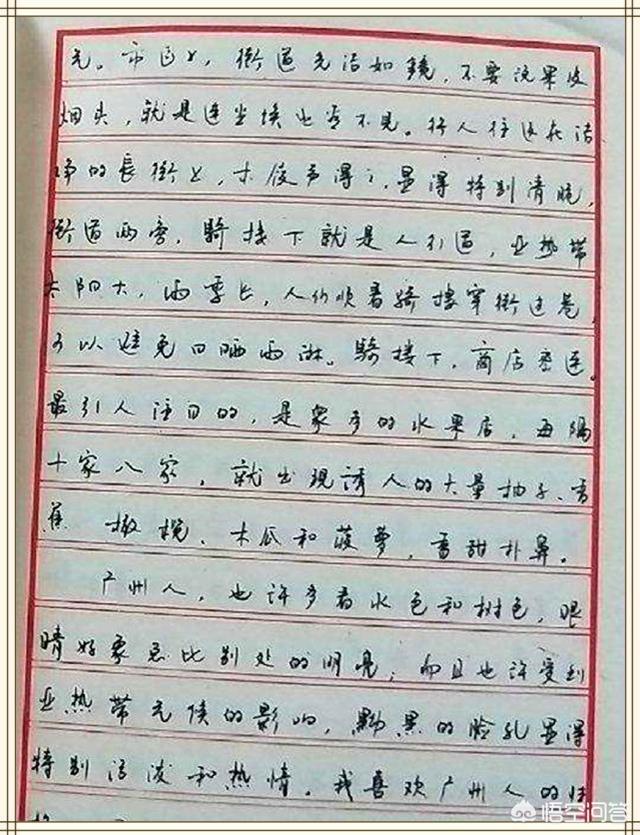 光。市区里，街道光洁如镜，不要说果皮
烟头，就是连尘埃也看不见。行人往返在洁
净的長街上，木屐声得得，显得特别清脆，
街道两旁，骑楼下就是人行道，亚热带
太阳大，雨季长，人们顺着骑楼穿街过巷，
可以避免日晒雨淋。骑楼下，商店密连。
最引人注目的，是众多的水果店，每隔
十家八家，就出现誘人的大量柚子、香
蕉 橄榄、木瓜和菠萝，香甜扑鼻。
广州人，也许多看水色和树色，眼
睛好象总比别处的明亮；而且也许受到
亚热带气候的影响，黝黑的脸孔显得
特别活泼和热情。我喜欢广州人的
悟空问答